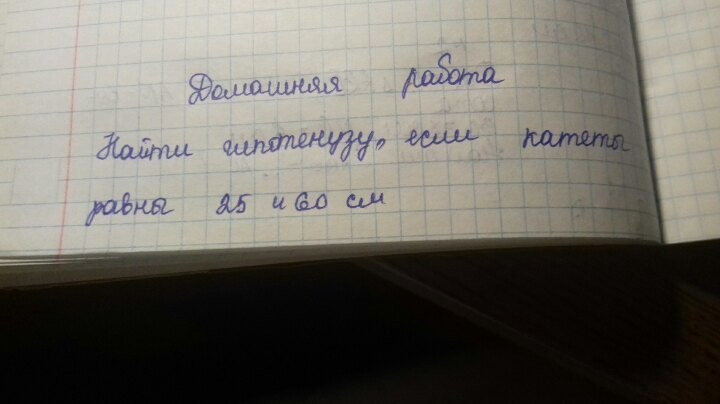 Домашняя работа
Найти гипотенузу, если катеты
равны 25 и 60 см